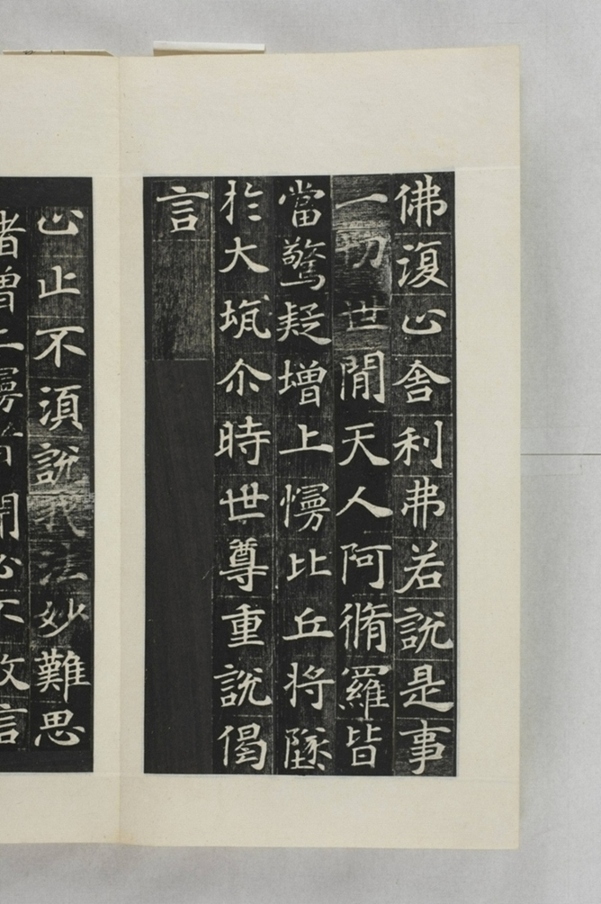 佛復止舍利弗若說是事
一切世閒天人阿脩羅皆
當驚疑增上慢比丘將墜
於大坑尒時世尊重說偈
言
止止不須說我法妙難思